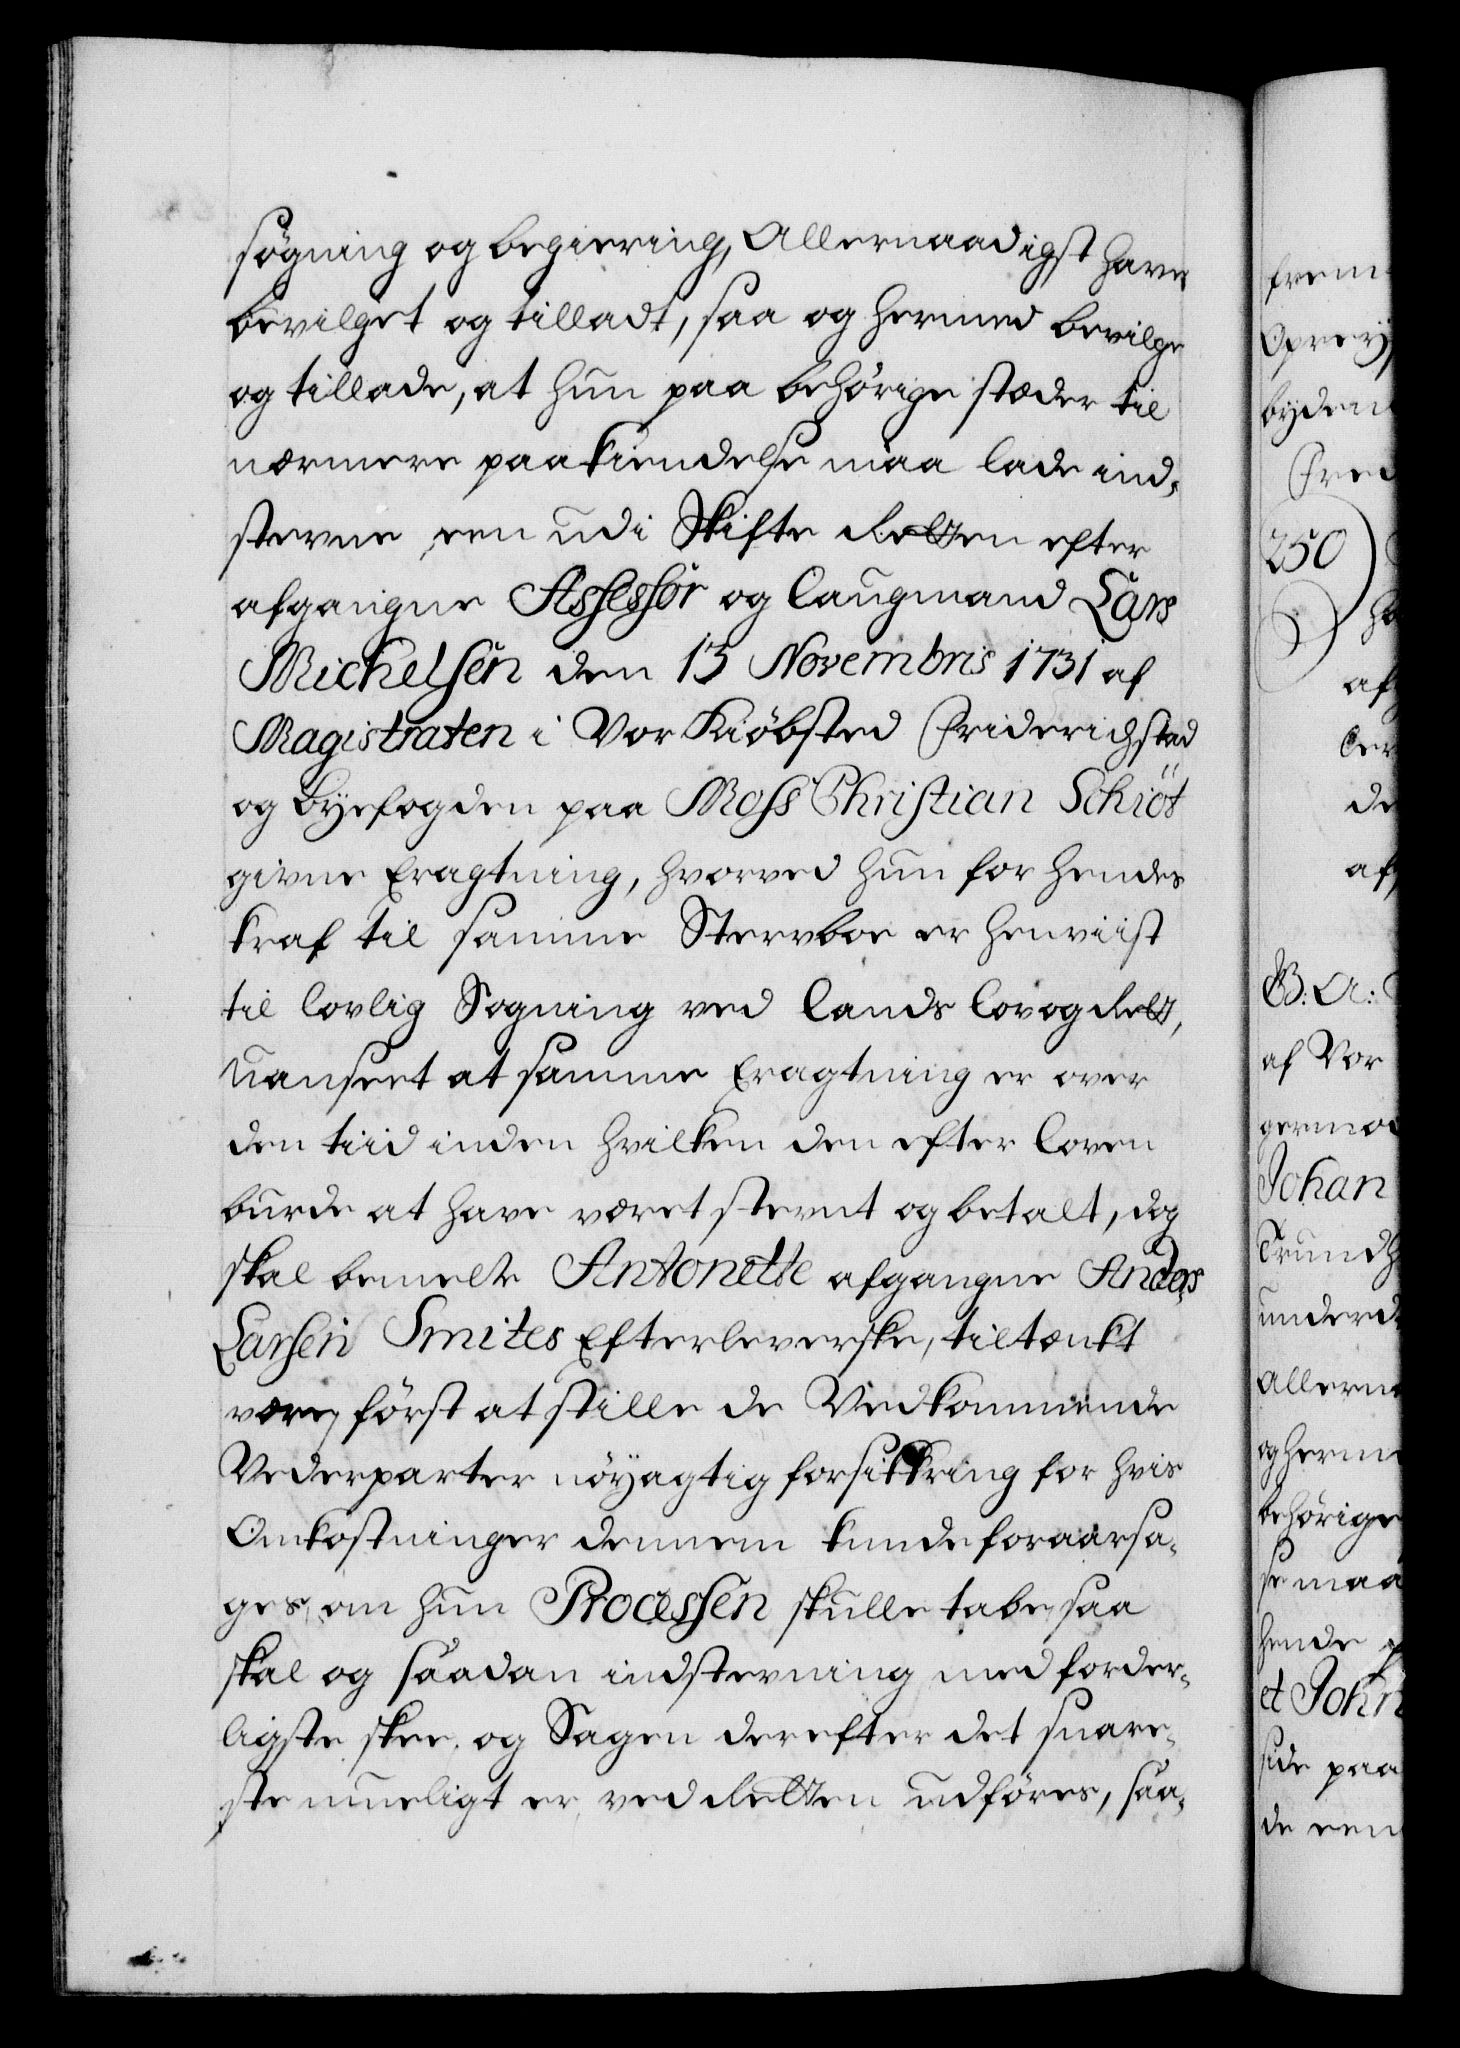 søgning og begiering, Allernaadigst have
bevilget og tilladt, saa og hermed bevilge
og tillade, at hun paa behörige stæder til
nærmere paakiendelse maa lade ind„
stevne een udi Skifte Retten efter
afgangne Assessor og Laugmand Lars
Michelsen den 13 Novembris 1731 af
Magistraten i Vor Kiöbsted Friderichstad
og Byefogden paa Moss Christian Schiöt
givne Eragtning, hvorved hun for hendes
kraf til samme Stervboe er henviist
til lovlig Søgning ved Lands Lov og Rett,
uanseet at samme Eragtning er over
den tiid inden hvilken den efter Loven
burde at have været stevnt og betalt, dog
skal bemelte Antonette afgangne Anders
Larsen Smites Efterleverske, tiltænkt
være, först at stille de Vedkommende
Vederparter nöyagtig forsikkring for hvis
Omkostninger dennem kunde foraarsa„
ges, om hun Processen skulle tabe, saa
skal og saadan indstevning med forder„
ligste skee, og Sagen derefter det snare„
ste mueligt er, ved Retten udföres, saa„
frem
bydem
Fred
250
af
de
af
B: A:
af Vor
germoe
Johan
Trundh
underd
Allerna
og herme
behörige
se maa
hende
et Joh
side paa
de een